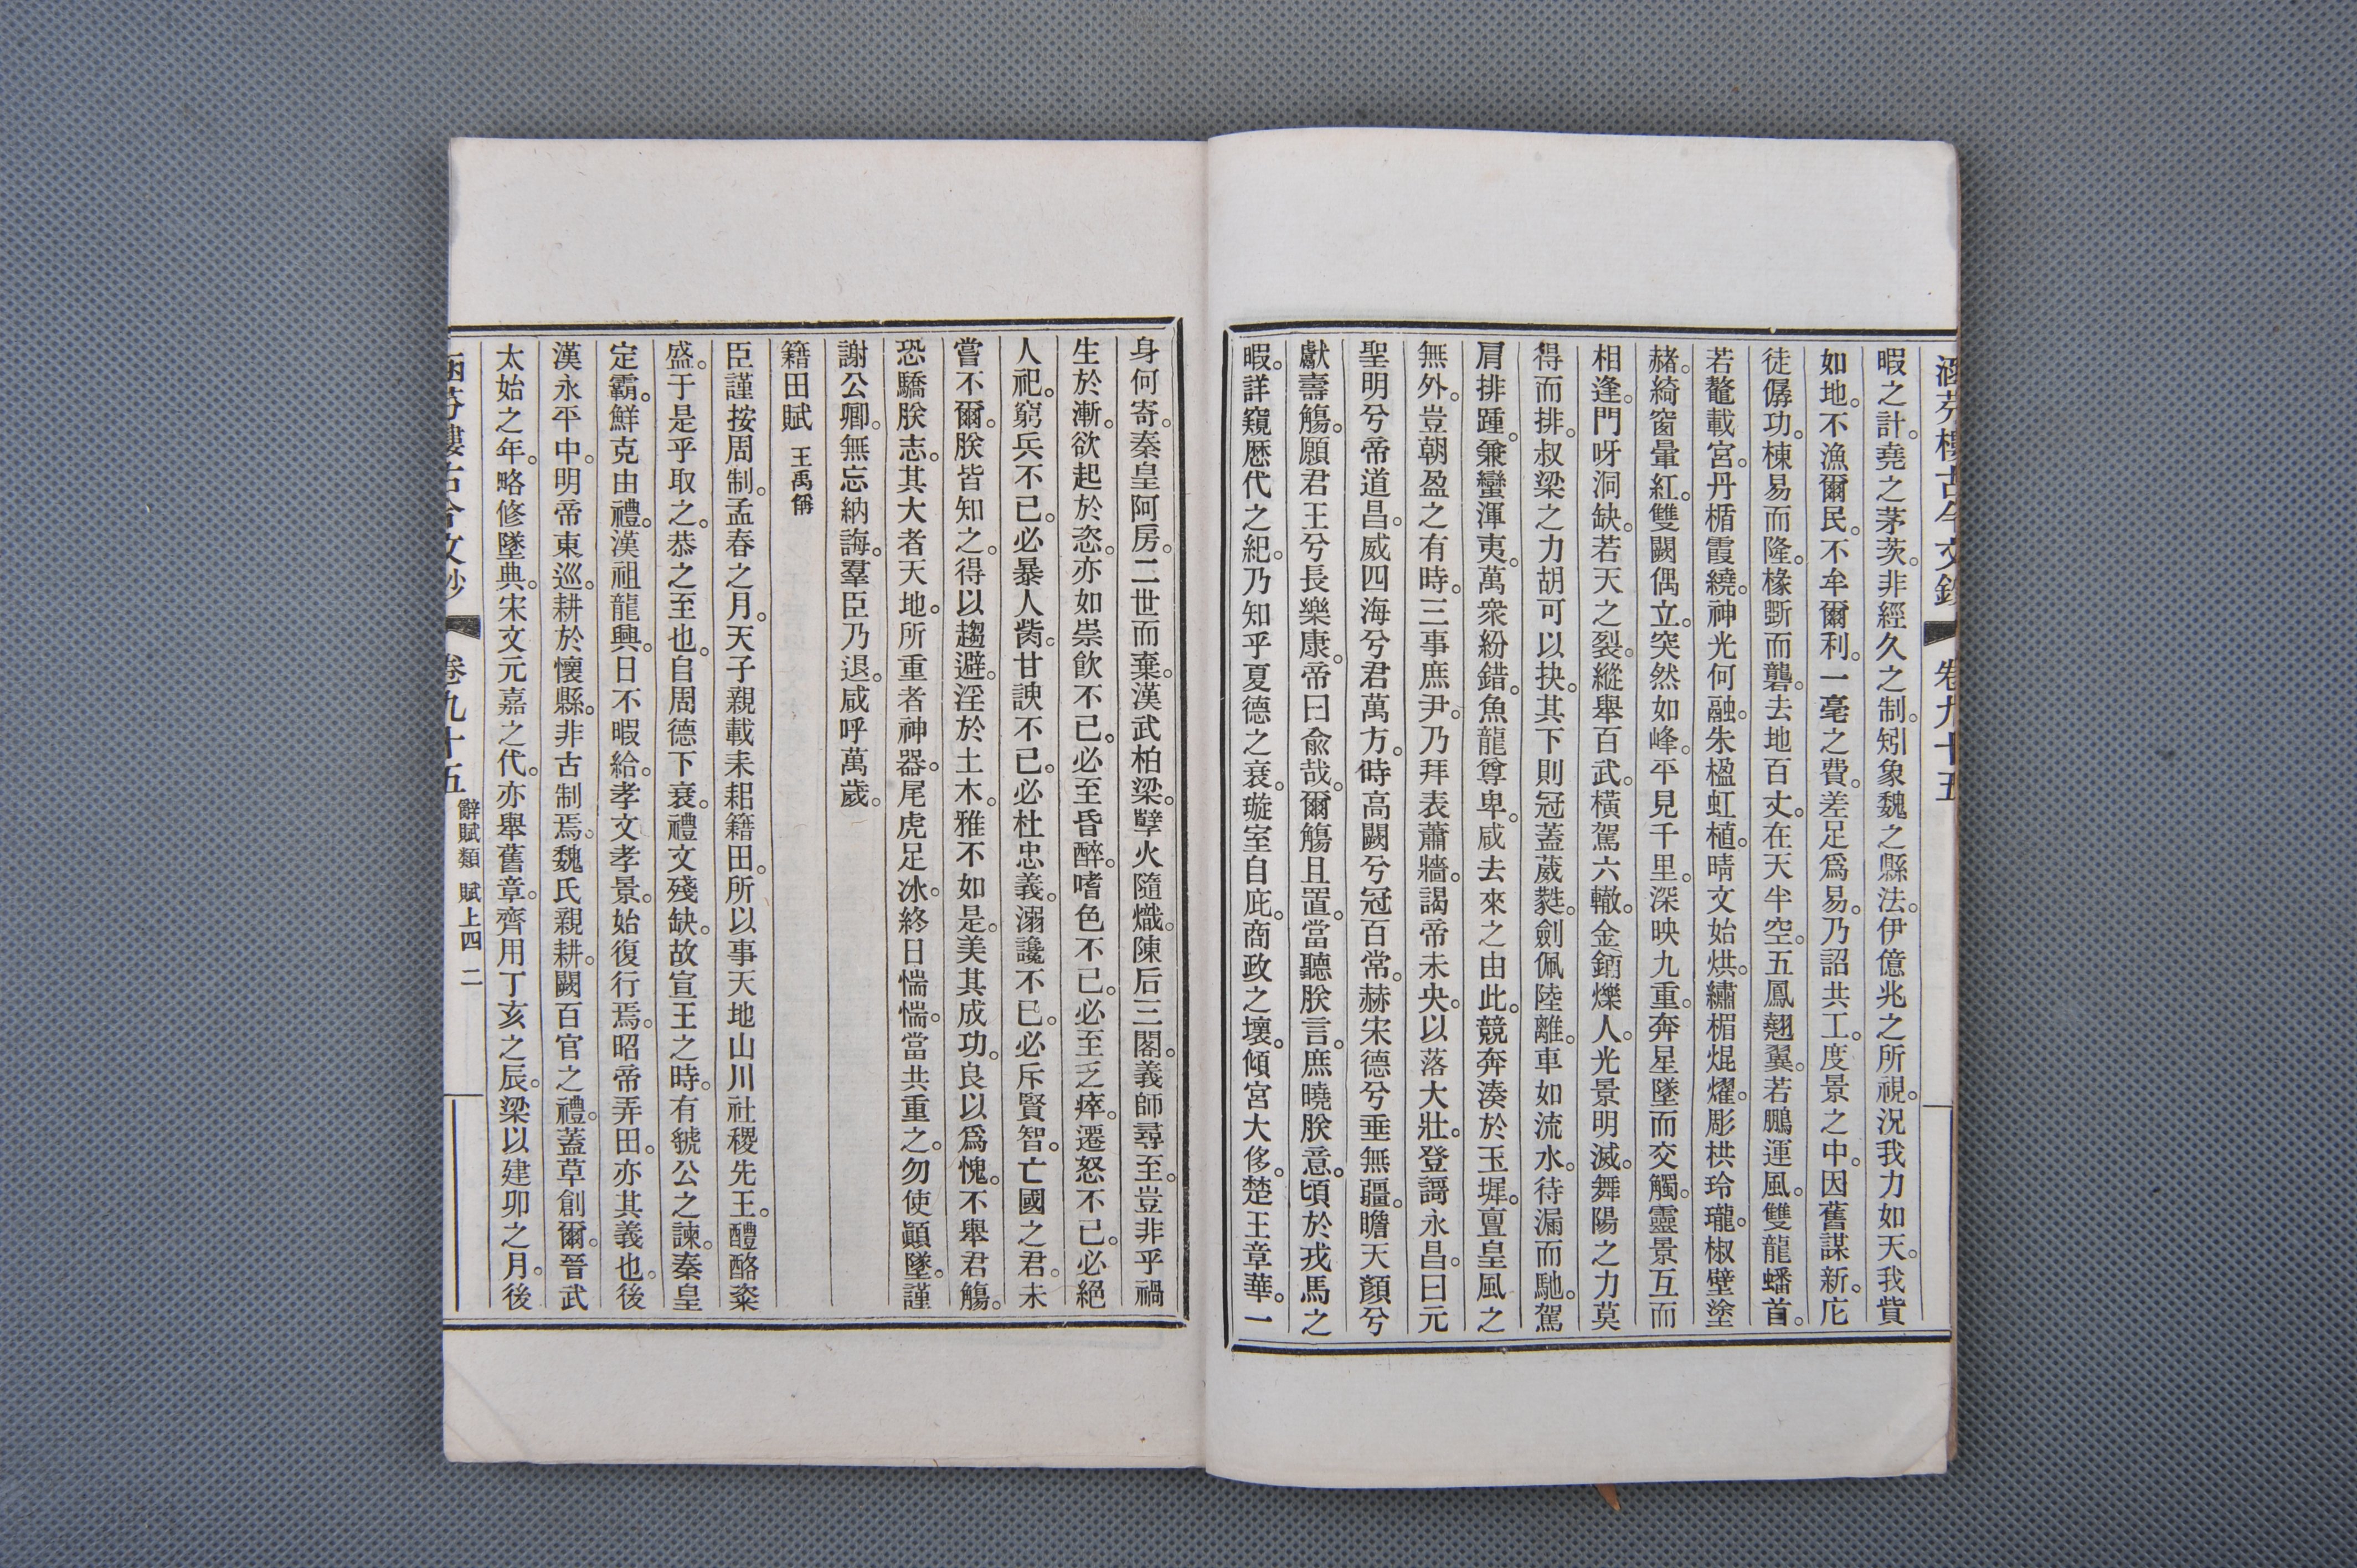 涵芬樓古今文鈔 卷九十五
暇之計。堯之茅茨。非經久之制。矧象魏之縣法。伊億兆之所視。況我力如天。我貲
如地。不漁爾民。不牟爾利。一毫之費。差足爲易。乃詔共工。度景之中。因舊謀新。庀
徒僝功。棟易而隆。椽斲而礱。去地百丈。在天半空。五鳳翹翼。若鵬運風。雙龍蟠首。
若鼇載宮。丹楯霞繞。神光何融。朱楹虹植。晴文始烘。繡楣焜燿。彫栱玲瓏。椒壁塗
赭。綺窗暈紅。雙闕偶立。突然如峰。平見千里。深映九重。奔星墜而交觸。靈景互而
相逢。門呀洞缺。若天之裂。縱舉百武。橫駕六轍。金鋪爍人。光景明滅。舞陽之力莫
得而排。叔梁之力胡可以抉。其下則冠蓋葳蕤。劍佩陸離。車如流水。待漏而馳。駕
肩排踵。兼蠻渾夷。萬衆紛錯。魚龍尊卑。咸去來之由此。競奔湊於玉墀。亶皇風之
無外。豈朝盈之有時。三事庶尹。乃拜表蕭牆。謁帝未央。以落大壯。登謌永昌。曰元
聖明兮帝道昌。威四海兮君萬方。時高闕兮冠百常。赫宋德兮垂無疆。瞻天顏兮
獻壽觴。願君王兮長樂康。帝曰俞哉。爾觴且置。當聽朕言。庶曉朕意。頃於戎馬之
暇。詳窺歷代之紀。乃知乎夏德之衰。璇室自庇。商政之壞。傾宮大侈。楚王章華。一
身何寄。秦皇阿房。二世而棄。漢武柏梁。孽火隨熾。陳后三閣。義師尋至。豈非乎禍
生於漸。欲起於恣。亦如祟飲不已。必至昏醉。嗜色不已。必至乏瘁。遷怒不已。必絕
人祀。窮兵不已。必暴人胔。甘諛不已。必杜忠義。溺讒不已。必斥賢智。亡國之君。未
嘗不爾。朕皆知之。得以趨避。淫於土木。雅不如是。美其成功。良以爲愧。不舉君觴。
恐驕朕志。其大者天地。所重者神器。尾虎足冰。終日惴惴。當共重之。勿使顚墜。謹
謝公卿。無忘納誨。羣臣乃退。咸呼萬歲。
籍田賦 王禹偁
臣謹按周制。孟春之月。天子親載耒耜籍田。所以事天地山川社稷先王。醴酪粢
盛。于是乎取之。恭之至也。自周德下衰。禮文殘缺。故宣王之時。有虢公之諫。秦皇
定霸。鮮克由禮。漢祖龍興。日不暇給。孝文孝景。始復行焉。昭帝弄田。亦其義也。後
漢永平中。明帝東巡。耕於懷縣。非古制焉。魏氏親耕。闕百官之禮。蓋草創爾。晉武
太始之年。略修墜典。宋文元嘉之代。亦舉舊章。齊用丁亥之辰。梁以建卯之月。後
涵芬樓古今文鈔 卷九十五 辭賦類 賦上四 二